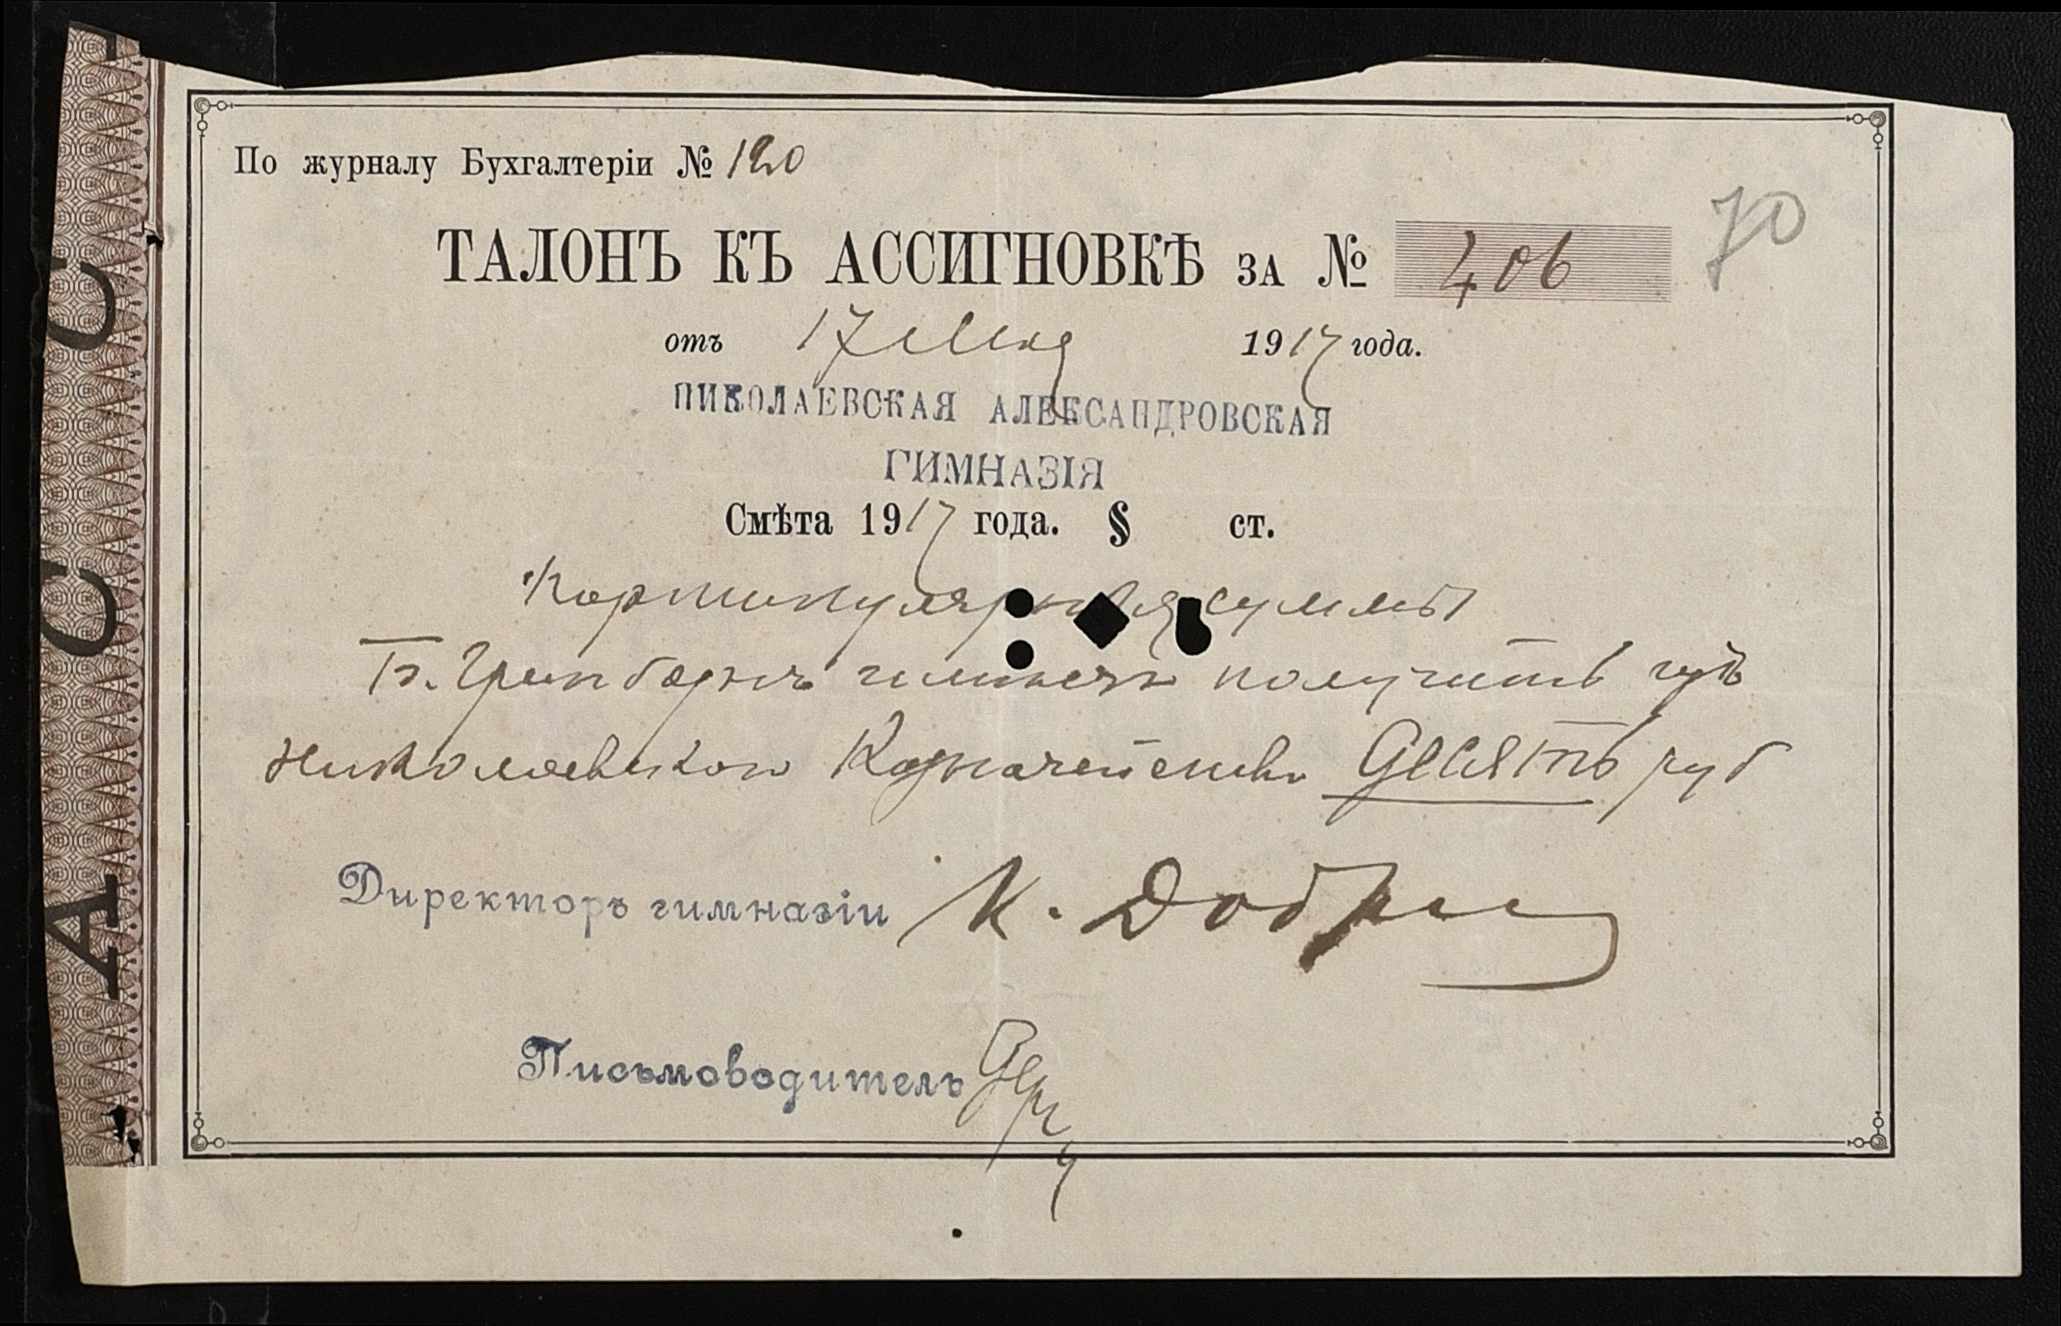 По журналу Бухгалтеріи № 120
ТАЛОНЪ КЪ АССИГНОВКѢ ЗА № 406
70
отъ 17 Мая 1917 года.
НИКОЛАЕВСКАЯ АЛЕКСАНДРОВСКАЯ
ГИМНАЗІЯ
Смѣта 1917 года. § ст.
суммы
Б. Гринбергъ имѣетъ получить изъ
Николаевскаго Казначейства Десять руб
Директоръ гимназіи К. Добр
Письмоводитель
АСС